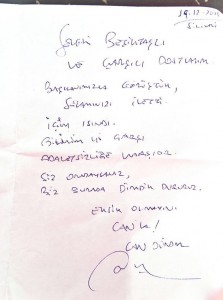 19.12.2015
Silivri
Şerefli Beşiktaşlı
ve Çarşılı Dostlarım,
Başkanımızla görüştüm,
Selamınızı iletti.
İçim ısındı.
Bilirim ki Çarşı
adaletsizliğe karşıdır.
Siz oradaysanız,
Biz burada dimdik dururuz.
Eksik olmayın.
Can'la!
Can Dündar